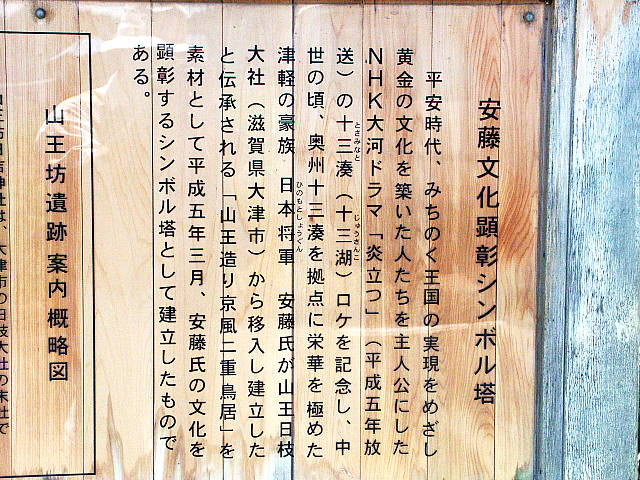 安藤文化顕彰シンボル塔
平安時代、みちのく王国の実現をめざし
黄金の文化を築いた人たちを主人公にした
NHK大河ドラマ「炎立つ」(平成五年放
送)の十三湊(十三湖)ロケを記念し、中
とさみなと
じゅうさんこ
世の頃、奥州十三湊を拠点に栄華を極めた
津軽の豪族 日本将軍 安藤氏が山王日枝
ひのもとしょうぐん
大社(滋賀県大津市)から移入し建立した
と伝承される「山王造り京風二重鳥居」を
素材として平成五年三月、安藤氏の文化を
顕彰するシンボル塔として建立したもので
ある。
山王坊遺跡 案内概略図
山王坊日吉神社は、大津市の日枝大社の末社で